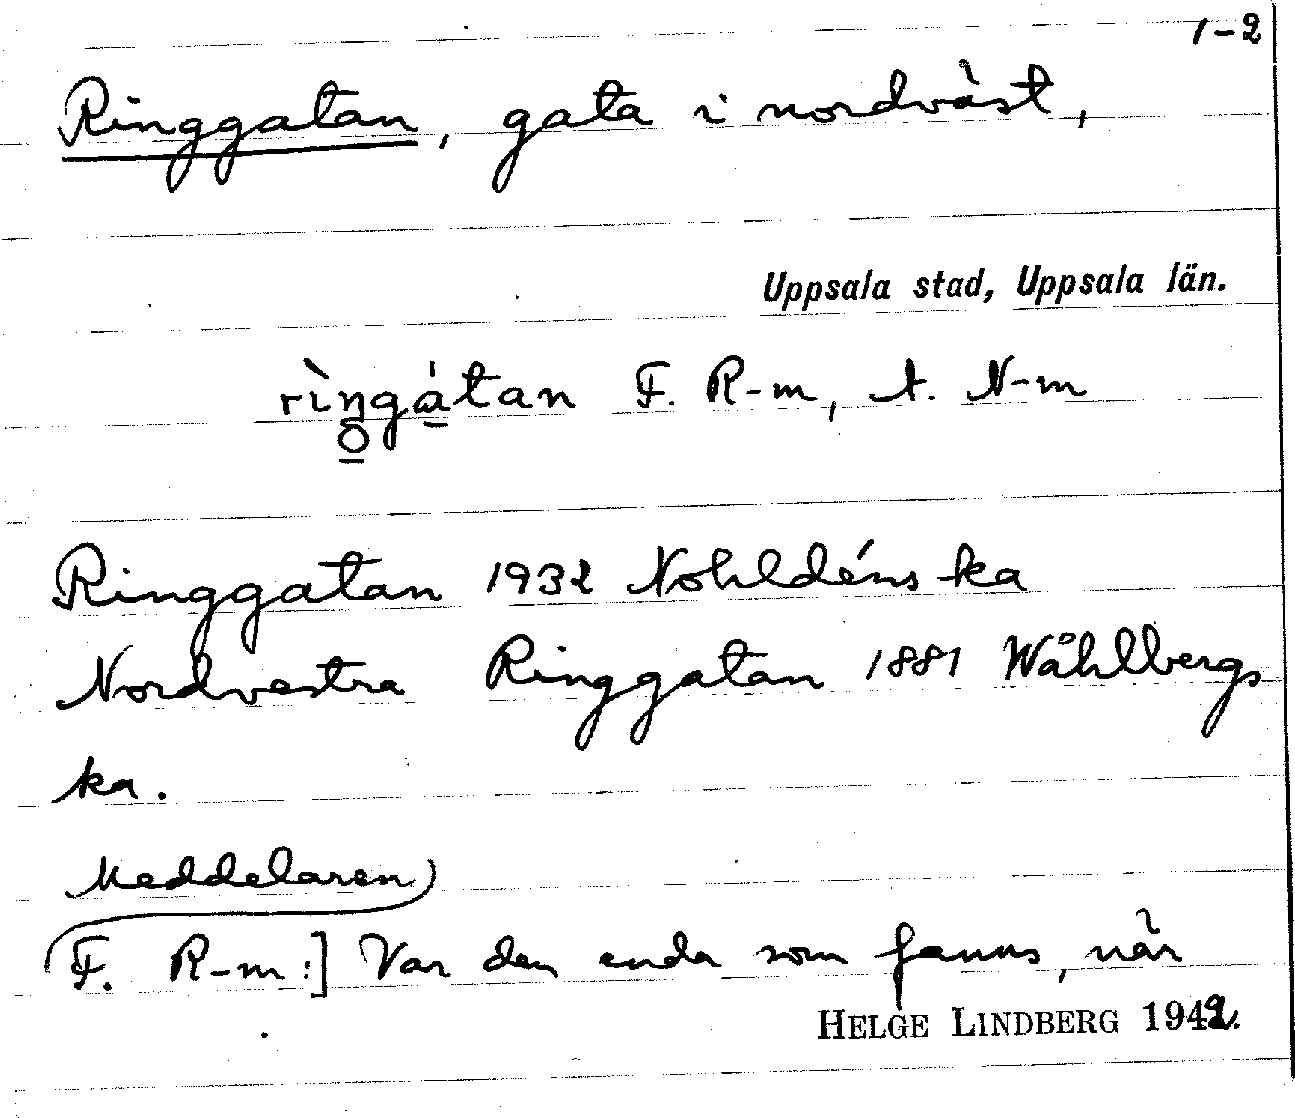 1-2
Ringgatan, gata i nordväst,
Uppsala stad, Uppsala län.
rìŋgátan F. R-m, A. N-m
Ringgatan 1932 Nohldénska
Nordvestra Ringgatan 1881 Wåhlbergs
ka.
Meddelaren
F. R-m:] Var den enda som fanns, när
HELGE LINDBERG 1942.